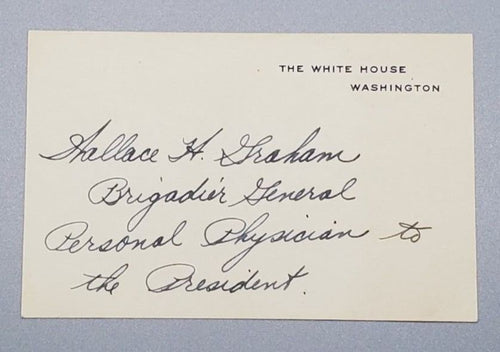 THE WHITE HOUSE
WASHINGTON
Wallace H. Graham
Brigadier General
Personal Physician to
the President.